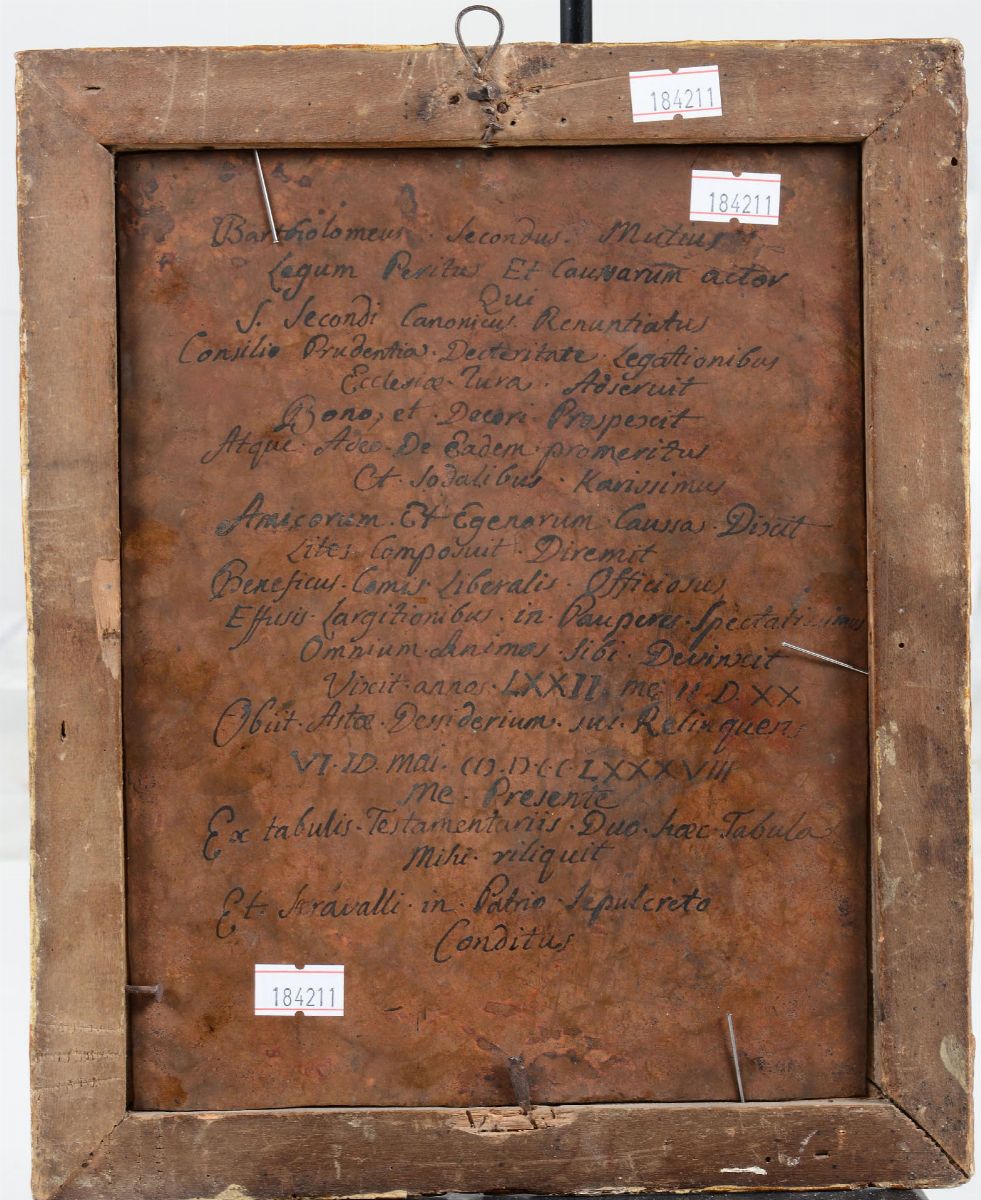 184211
184211
Bartholomeus · Secondus · Mutius
Legum Peritus Et Caussarum actor
Qui
S. Secondi Canonicus Renuntiatus
Consilio Prudentia · Decteritate Legationibus
Ecclesiæ · Iura · Adseruit
Bono, et · Decori · Prospexit
Atque · Adeo · De Eadem · promeritus
Et · Sodalibus · Karissimus
Amicorum · Et Egenorum · Caussas · Dixit
Lites Composuit · Diremit
Beneficus · Comis Liberalis · Officiosus
Effusis Largitionibus · in · Pauperes · Spectatissimus
Omnium · Animos · Sibi · Devinxit
Vixit · annos · LXXII · me · II · D · XX
Obiit · Astæ · Dessiderium · sui · Relinquens
VI · ID · Mai · CIƆ · IƆ · C · C · LXXXVIII
Me · Presente
Ex tabulis · Testamentariis · Duo · hæc · Tabula
Mihi · riliquit
Et Seravalli · in · Patrio · Sepulcreto
Conditus
184211